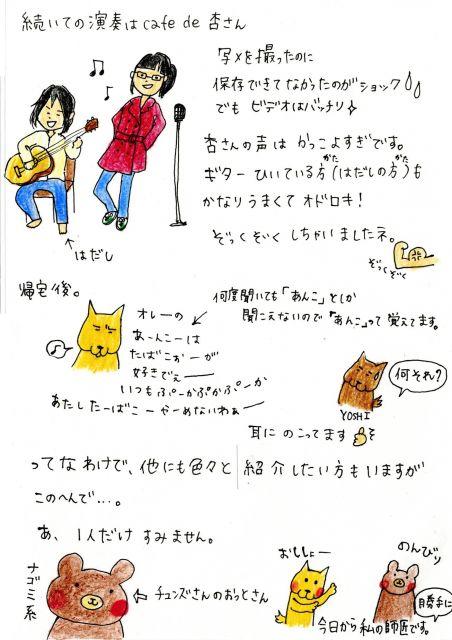 続いての演奏は cafe de 杏さん
写メを撮ったのに
保存できてなかったのがショック
でも ビデオはバッチリ
杏さんの声は かっこよすぎです。
ギター ひいている方(はだしの方)も
がた
かた
かなりうまくて オドロキ!
ぞっくぞぃく しちゃいましたネ。
はだし
ぞっくぞく
帰宅後。
何度聞いても「あんこ」としか
聞こえないので「あんこ」って覚えてます。
オレーの
あーんこーは
たばこぉーが
好きでぇー
いつもぷーかぷかぷーか
あたしたーばこーやーめないわぁー
何それ?
YOSHI
耳に のこってます
ってなわけで、他にも色々と紹介したい方もいますが
このへんで…。
あ、1人だけ すみません。
ナゴミ系
チュンズさんのおっとさん
おししょー
のんびり
勝手に
今日から私の師匠です。